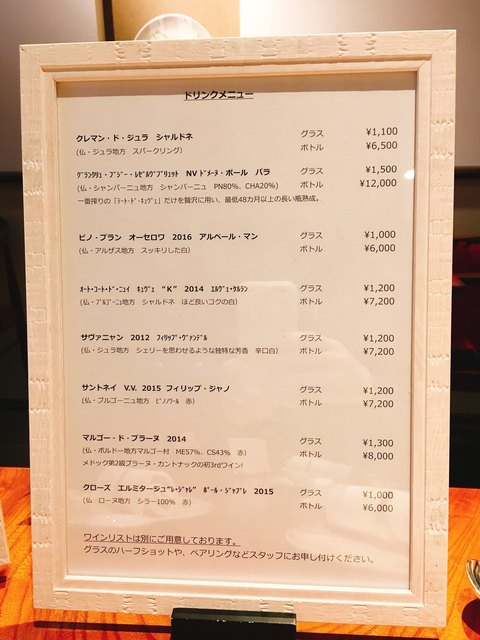 ドリンクメニュー
クレマン・ド・ジュラ　シャルドネ　グラス　¥1,100
（仏・ジュラ地方　スパークリング）　ボトル　¥6,500
ｸﾞﾗﾝｸﾘｭ・ﾌﾞｼﾞｰ・ﾚｾﾞﾙｳﾞﾌﾞﾘｭｯﾄ　NV ﾄﾞﾒｰﾇ・ポール　バラ　グラス　¥1,500
（仏・シャンパーニュ地方　シャンパーニュ　PN80%、CHA20%）　ボトル　¥12,000
一番搾りの「ﾃｰﾄ・ﾄﾞ・ｷｭｳﾞｪ」だけを贅沢に用い、最低48カ月以上の長い瓶熟成。
ピノ・ブラン　オーセロワ　2016　アルベール・マン　グラス　¥1,000
（仏・アルザス地方　スッキリした白）　ボトル　¥6,000
ｵｰﾄ・ｺｰﾄ・ﾄﾞ・ﾆｭｲ　ｷｭｳﾞｪ　"K"　2014　ｴﾙｳﾞｪ・ｹﾙﾗﾝ　グラス　¥1,200
（仏・ﾌﾞﾙｺﾞｰﾆｭ地方　シャルドネ　ほど良いコクの白）　ボトル　¥7,200
サヴァニャン　2012　ﾌｨﾘｯﾌﾟ・ｳﾞｧﾝﾃﾞﾙ　グラス　¥1,200
（仏・ジュラ地方　シェリーを思わせるような独特な芳香　辛口白）　ボトル　¥7,200
サントネイ　V.V. 2015 フィリップ・ジャノ　グラス　¥1,200
（仏・ブルゴーニュ地方　ﾋﾟﾉﾉﾜｰﾙ　赤）　ボトル　¥7,200
マルゴー・ド・ブラーヌ　2014　グラス　¥1,300
（仏・ボルドー地方マルゴー村　ME57%、CS43%　赤）　ボトル　¥8,000
メドック第2級ブラーヌ・カントナックの初3rdワイン!
クローズ　エルミタージュ"ﾚ・ｼﾞｬﾚ"　ﾎﾟｰﾙ・ｼﾞｬﾌﾞﾚ　2015　グラス　¥1,000
（仏　ローヌ地方　シラー100%　赤）　ボトル　¥6,000
ワインリストは別にご用意しております。
グラスのハーフショットや、ペアリングなどスタッフにお申し付けください。